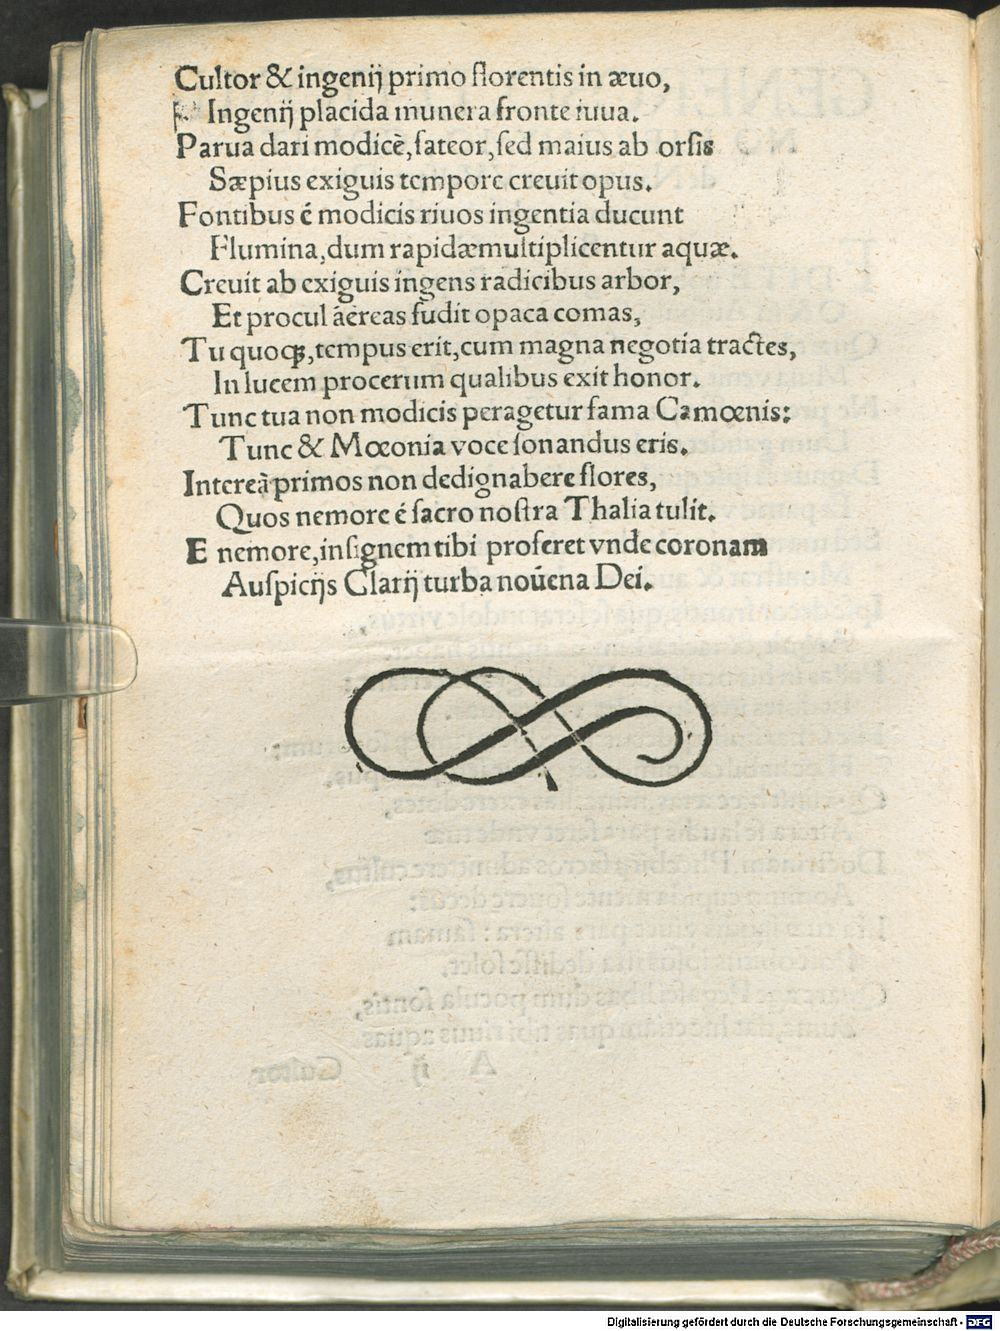 Cultor & ingenij primo florentis in æuo,
Ingenij placida munera fronte iuua.
Parua dari modicè, fateor, ſed maius ab orſis
Sæpius exiguis tempore creuit opus.
Fontibus é modicis riuos ingentia ducunt
Flumina, dum rapidæ multiplicentur aquæ.
Creuit ab exiguis ingens radicibus arbor,
Et procul äereas fudit opaca comas,
Tu quoqȝ, tempus erit, cum magna negotia tractes,
In lucem procerum qualibus exit honor.
Tunc tua non modicis peragetur fama Camœnis:
Tunc & Mœonia voce ſonandus eris.
Intereà primos non dedignabere flores,
Quos nemore é ſacro noſtra Thalia tulit.
E nemore, inſignem tibi proferet vnde coronam
Auſpicijs Clarij turba noûena Dei.
Digitalisierung gefördert durch die Deutsche Forschungsgemeinschaft - DFG